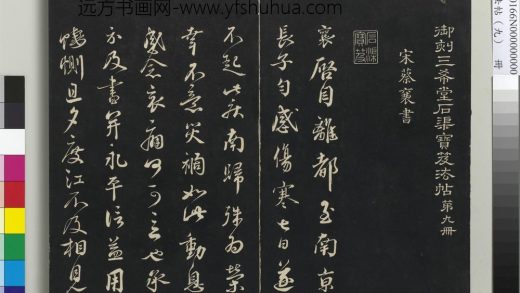 远方书画网-www.yfshuhua.com
御刻三希堂石渠寶笈法帖第九冊
宋蔡襄書
石渠寶笈
襄啓自離都至南京
長子勻感傷寒七日遂
不起此疾南歸殊爲榮
幸不意災禍如此動息
感念哀痛何可言也承
示及書并永平信益用
悽惻旦夕度江不及相見
帖（九） 冊
0166N000000000